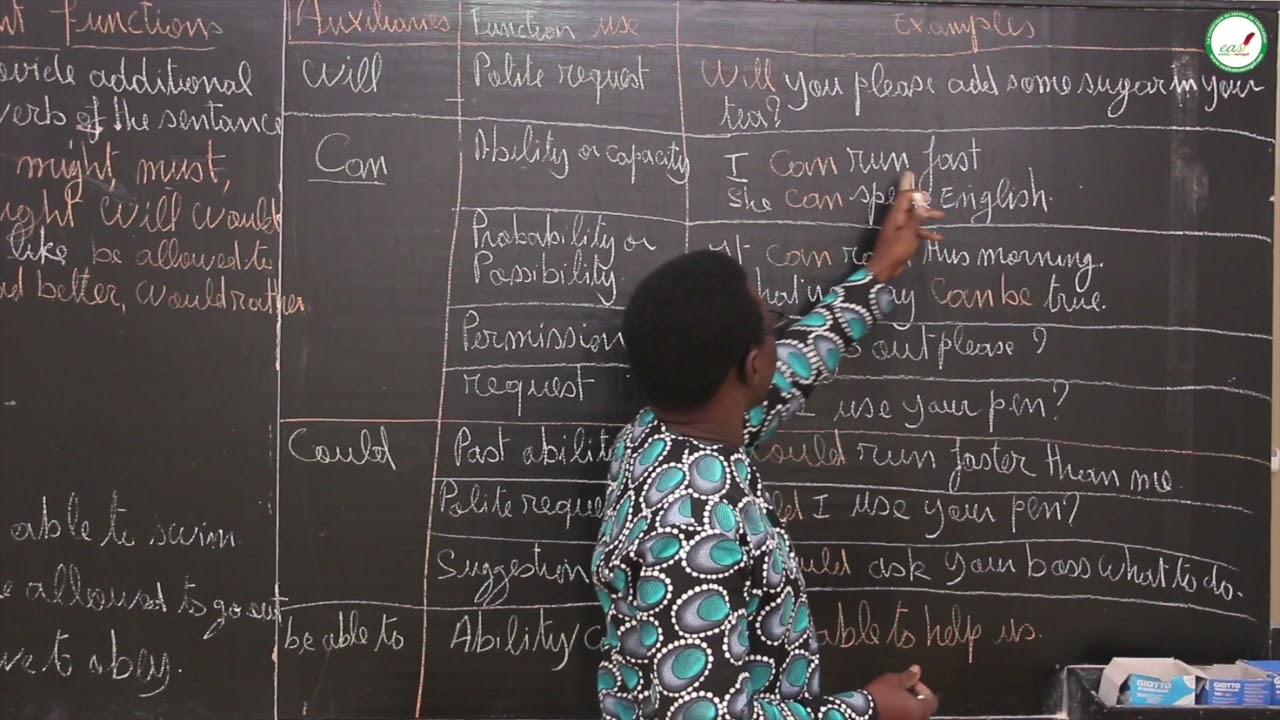 nt functions
ovide additional
verb of the sentance
might must,
ight will would
like be allowed to
ad better, would rather
able to swim.
e allowed to go out
ve to obey.
Auxiliaries Function use Examples
Will Polite request Will you please add some sugar in your
tea?
Can Ability or capacity I can run fast
She can English.
Probability or It can this morning.
Possibility. can be true.
Permission out please ?
request I use your pen?
Could Past ability could run faster than me.
Polite reque ld I use your pen?
Suggestion ould ask your boss what to do.
be able to Ability/ able to help us.
eas
GIOTTO
GIOTTO